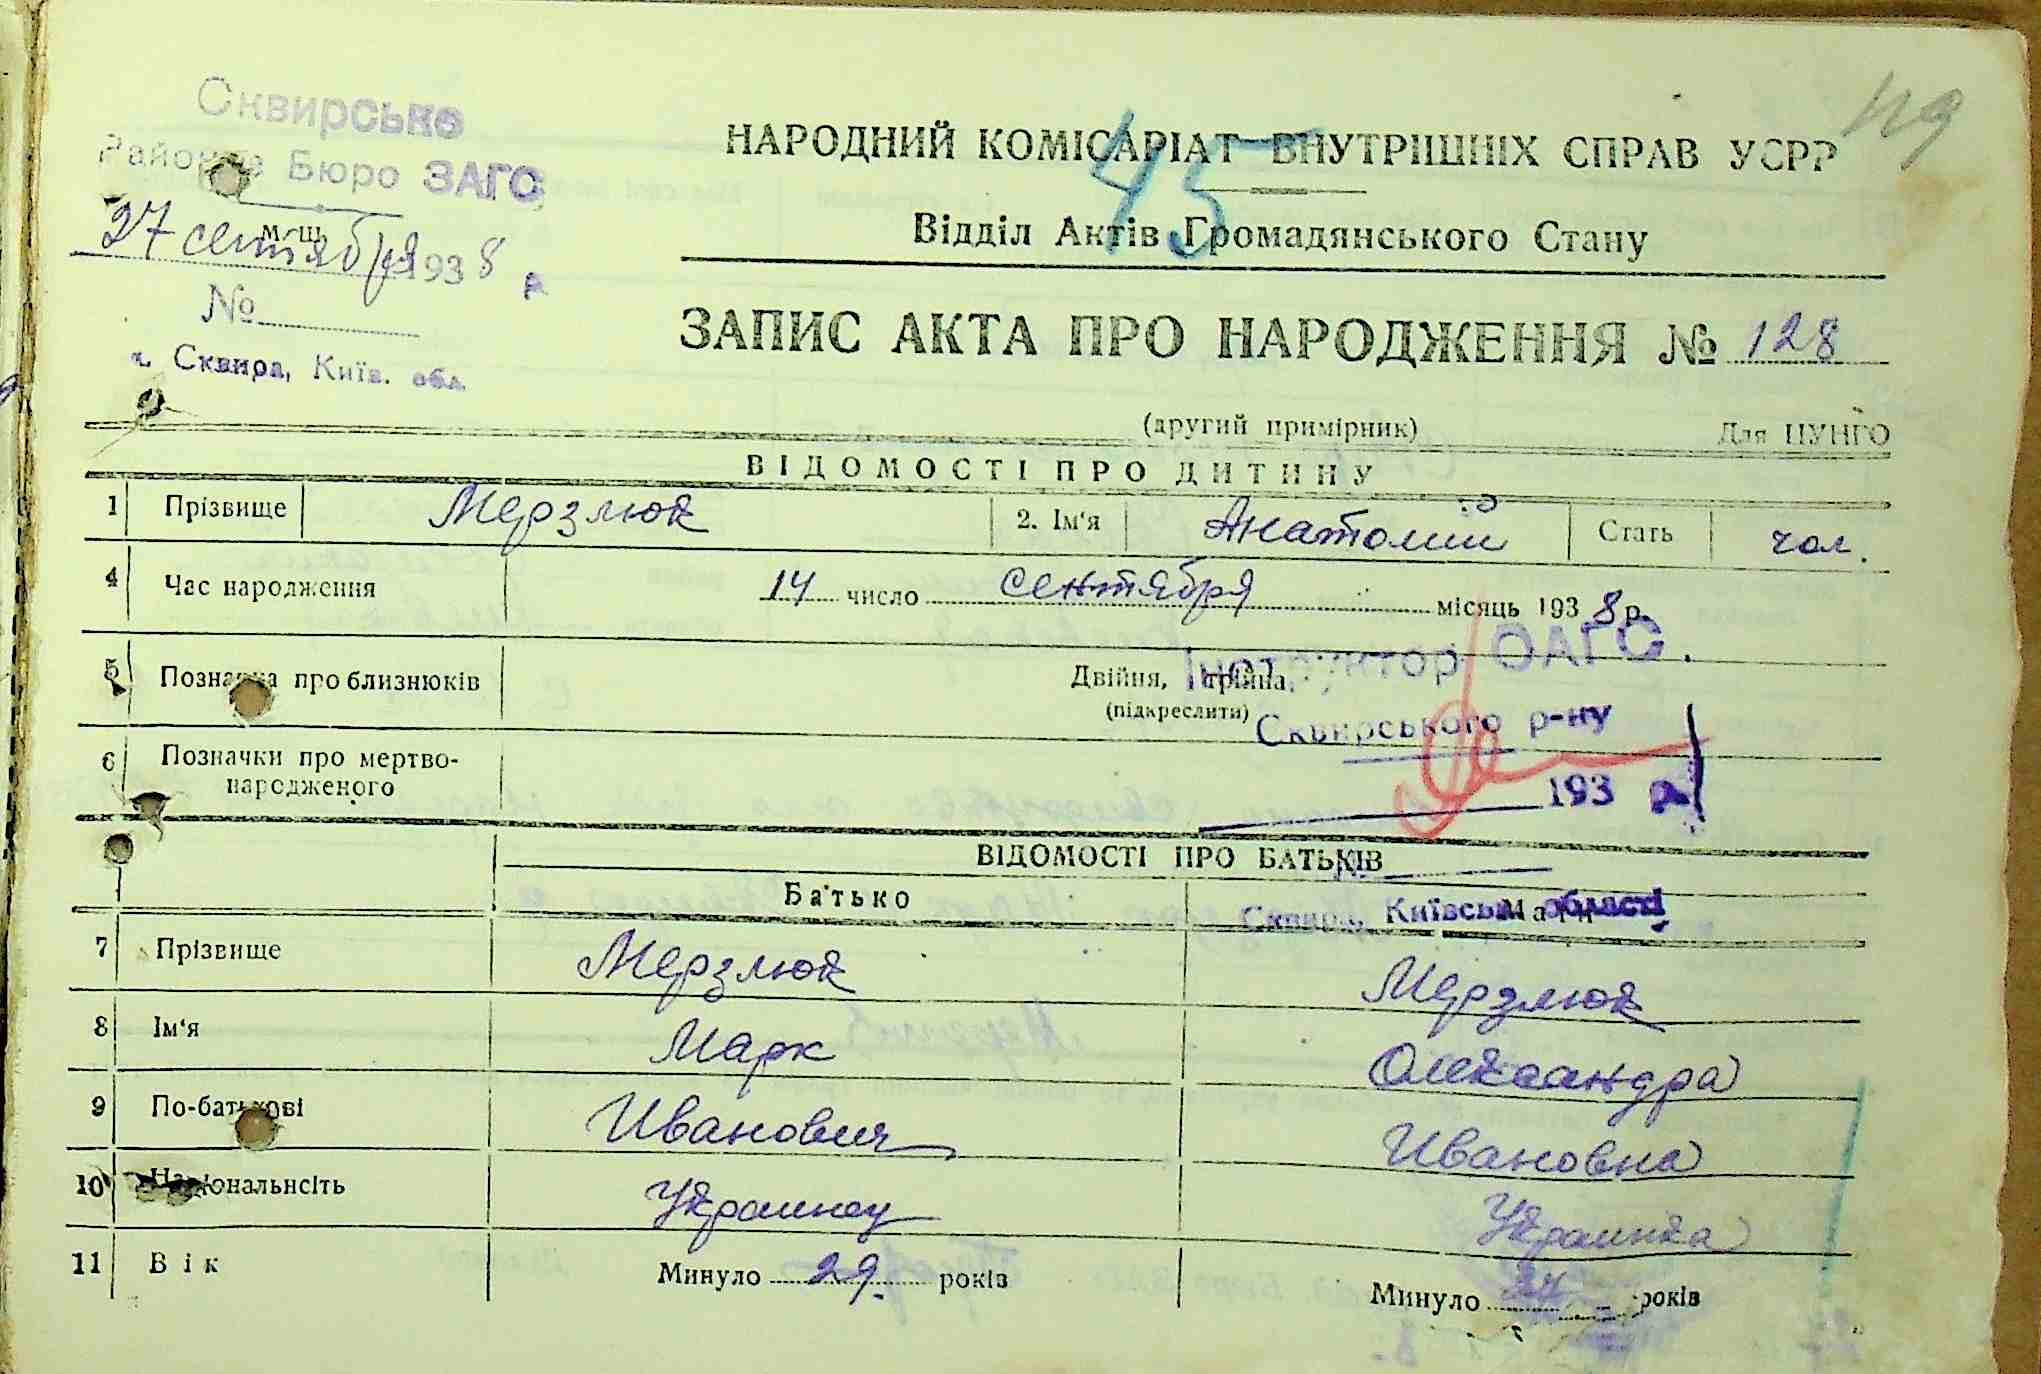 119
45
Сквирське
Районне Бюро ЗАГС
м-ц
27 сентября 1938 р.
№
м. Сквира, Київ. обл.
НАРОДНИЙ КОМІСАРІАТ ВНУТРІШНІХ СПРАВ УСРР
Відділ Актів Громадянського Стану
ЗАПИС АКТА ПРО НАРОДЖЕННЯ № 128
(другий примірник) Для ЦУНГО
ВІДОМОСТІ ПРО ДИТИНУ
1 Прізвище Мерзлюк 2. Ім'я Анатолий Стать чол.
4 Час народження 14 число сентября місяць 1938 р.
5 Позначка про близнюків Двійня, трійня.
(підкреслити)
Інспектор ОАГС.
Сквирського р-ну
193 р.
6 Позначки про мертво-
народженого
ВІДОМОСТІ ПРО БАТЬКІВ
Батько Мати
Сквира, Київської області
7 Прізвище Мерзлюк Мерзлюк
8 Ім'я Марк Олександра
9 По-батькові Иванович Ивановна
10 Національнсіть Украинец Украинка
11 Вік Минуло 29 років Минуло років